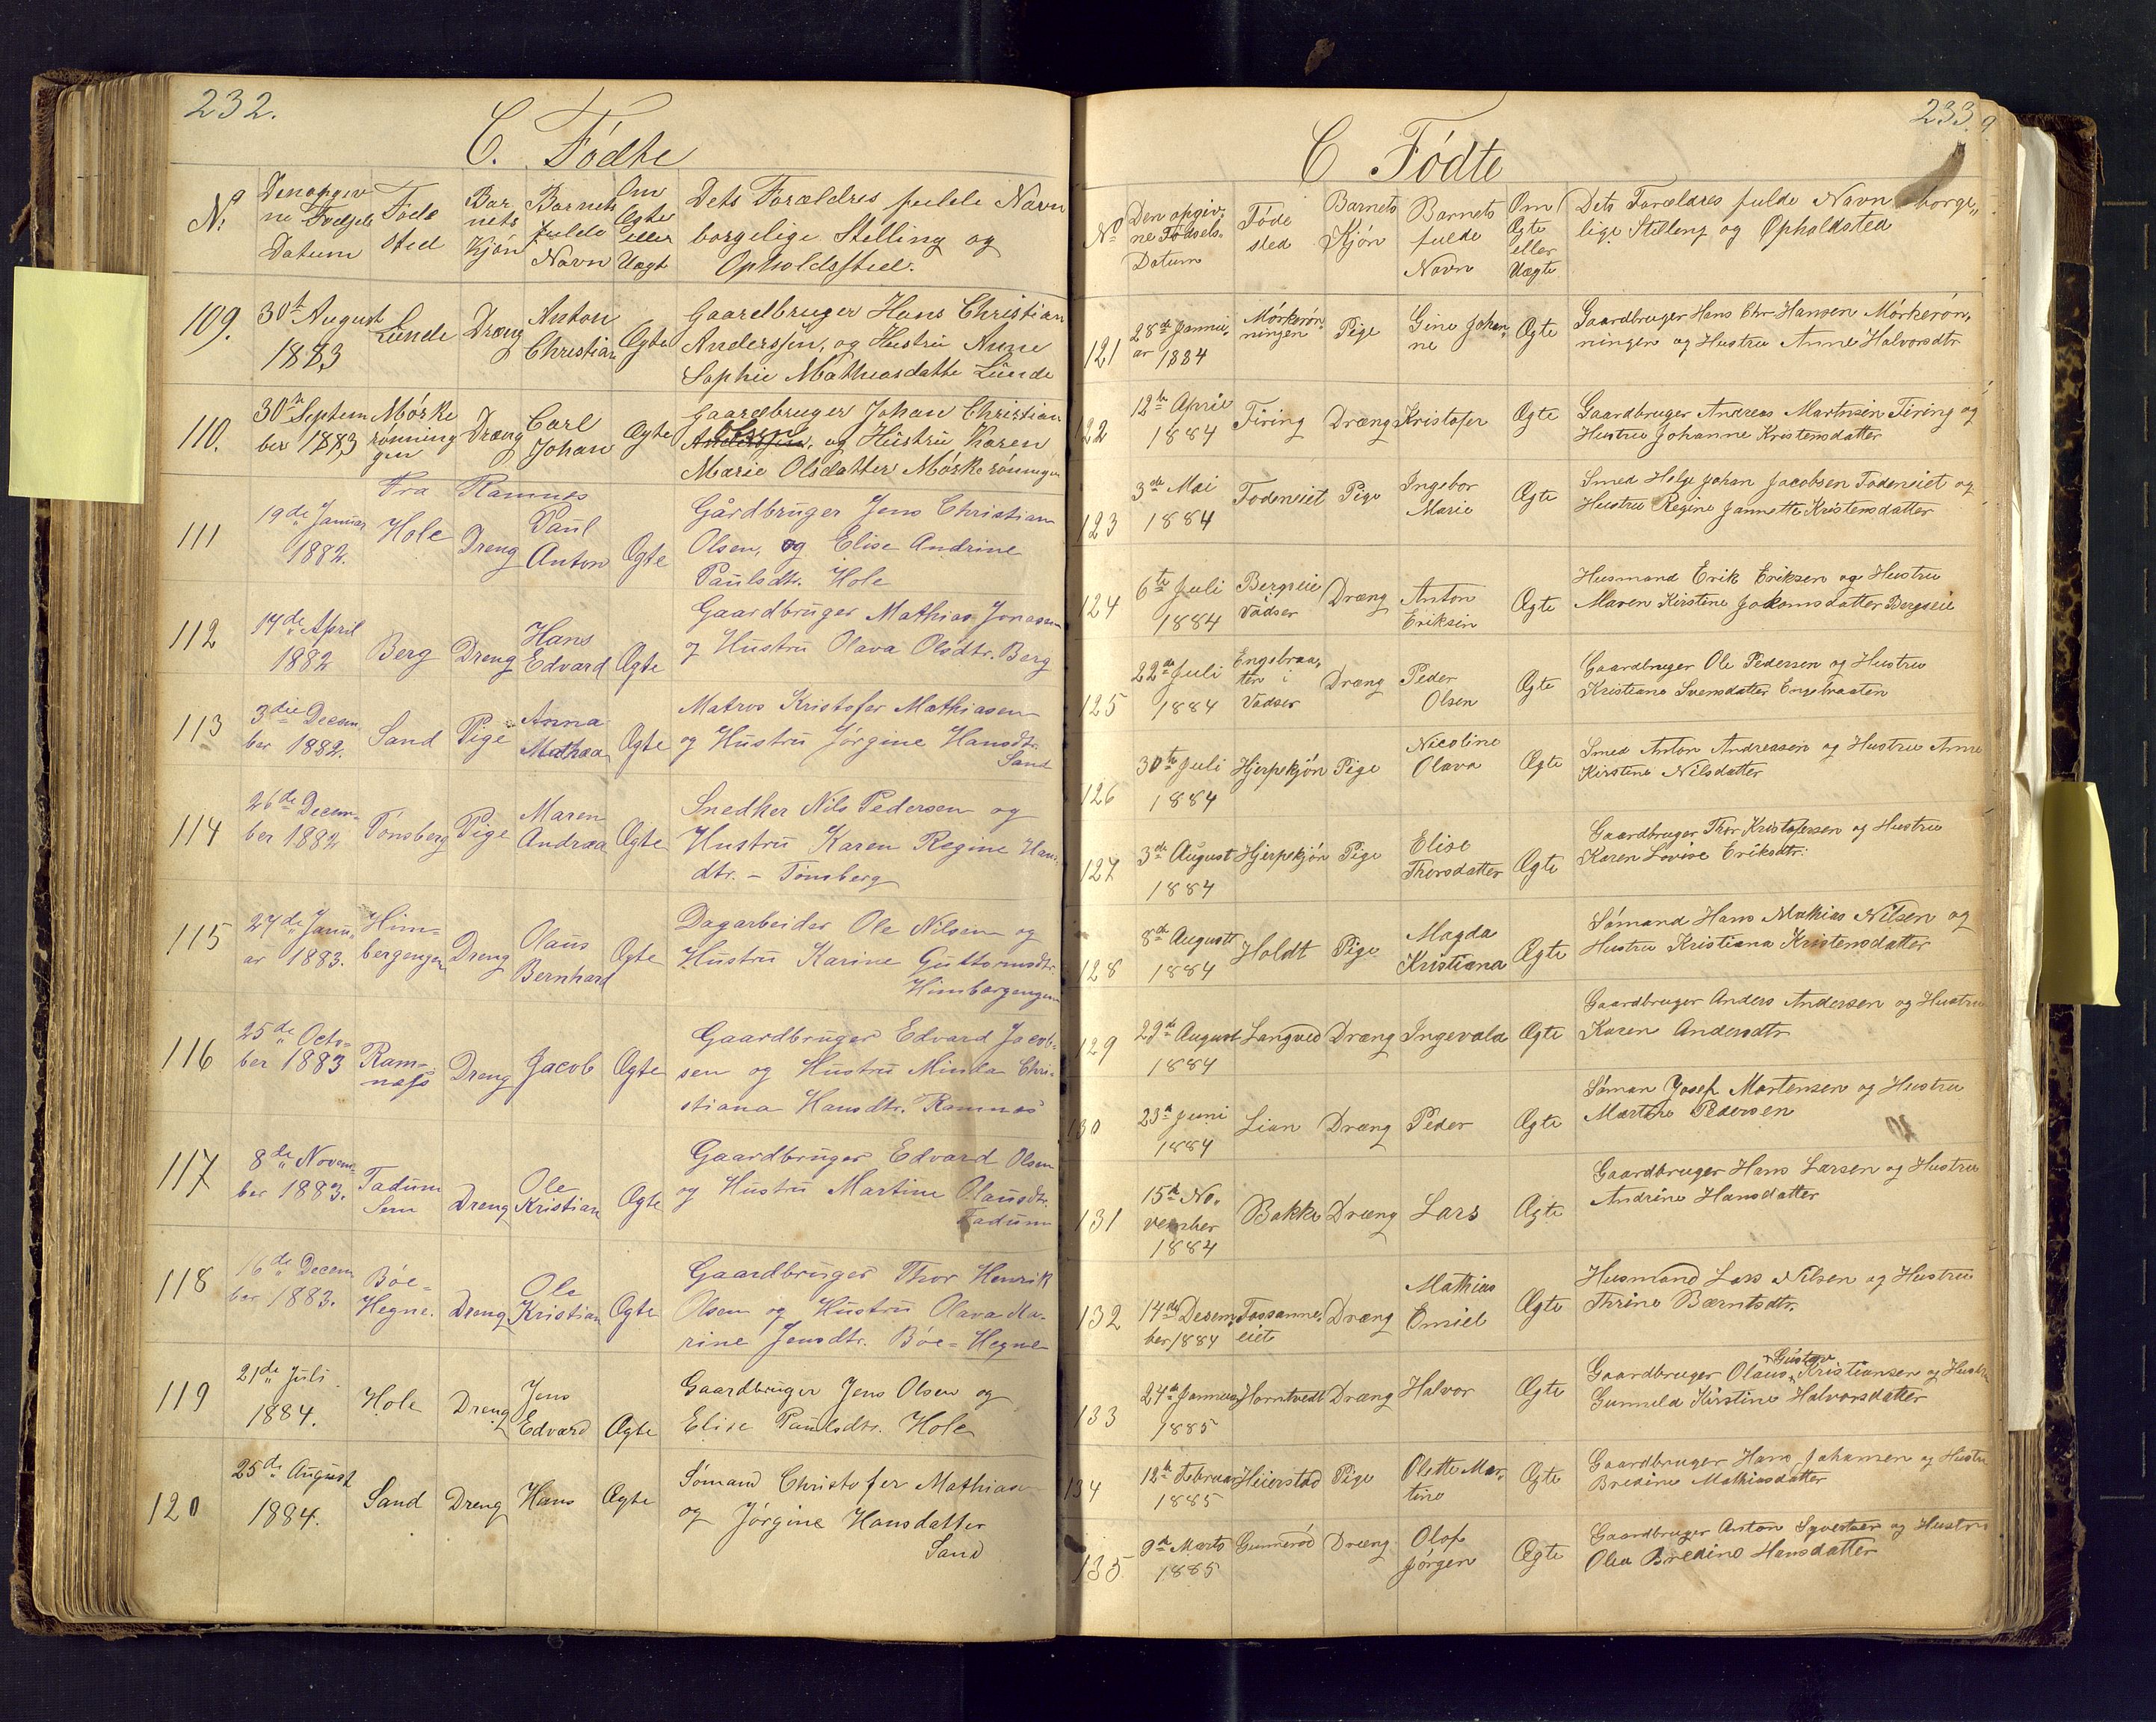 232.
C. Fødte
No Den opgiv ne Fødsels Datum Føde sted Bar nets Kjøn Barnets fulde Navn Om Ægte eller Uægt Dets Forældres fulde Navn borgelige Stilling og Opholdssted.
109. 30te August 1883 Lunde Dræng Anton Christian Ægte Gaardbruger Hans Christian
Anderssen, og Hustru Anne
Sophie Mathiasdatte Lunde
110. 30te Septem ber 1883 Mørke rønning gen Dræng Carl Johan Ægte Gaardbruger Johan Christian
Olsen
Anderssen, og Hustru Karen
Marie Olsdatter Mørkerønningen
Fra Ramnes
111 19de Januar 1882. Hole Dreng Paul Anton Ægte Gårdbruger Jens Christian
Olsen, og Elise Andrine
Paulsdtr. Hole
112 14de April 1882 Berg Dreng Hans Edvard Ægte Gaardbruger Mathias Jonasen
og Hustru Olava Olsdtr. Berg
113 3die Decem ber 1882. Sand Pige Anna Mathea Ægte Matros Kristofer Mathiasen
og Hustru Jørgine Hansdtr.
Sand
114 26de Decem- ber 1882 Tønsberg Pige Maren Andrea Ægte Snedker Nils Pedersen og
Hustru Karen Regine Han-
dtr. - Tønsberg
115 27de Janu- ar 1883. Him- bergengen Dreng Olaus Bernhard Ægte Dagarbeider Ole Nilsen og
Hustru Karine Guttormsdtr.
Himbergengen
116 25de Octo- ber 1883 Ram- næss Dreng Jacob Ægte Gaardbruger Edvard Jacob-
sen og Hustru Minda Chri-
stiana Hansdtr. Ramnes
117 8de Novem- ber 1883. Tadum Sem Dreng Ole Kristian Ægte Gaardbruger Edvard Olsen
og Hustru Martine Olausdtr.
Tadum
118 16de Decem ber 1883. Bøe- Hegne. Dreng Ole Kristian Ægte Gaardbruger Thor Henrik
Olsen og Hustru Olava Ka-
rine Jensdtr. Bøe-Hegne
119 21de Juli 1884. Hole Dreng Jens Edvard Ægte Gaardbruger Jens Olsen og
Elise Paulsdtr. Hole
120 25de August 1884. Sand Dreng Hans Ægte Sømand Christofer Mathiasen
og Jørgine Hansdatter
Sand
233.
C Fødte
No Den opgiv- ne Fødsels- Datum Føde sted Barnets Kjøn Barnets fulde Navn Om Ægte eller Uægte Dets Forældres fulde Navn borge-
lige Stilling og Opholdsted
121 28de Janu- ar 1884 Mørkerøn- ningen Pige Gine Johan- ne Ægte Gaardbruger Hans Chr Hansen Mørkerøn-
ningen og Hustru Anne Halvorsdtr
122 12te April 1884 Firing Dræng Kristofer Ægte Gaardbruger Andreas Martinsen Firing og
Hustru Johanne Kristensdatter
123 3de Mai 1884 Fodeneiet Pige Ingebor Marie Ægte Smed Helge Johan Jacobsen Fodeneiet og
Hustru Regine Jannette Kristensdatter
124 6te Juli 1884 Bergseie Vadser Dræng Anton Eriksen Ægte Husmand Erik Eriksen og Hustru
Maren Kirstine Jakomsdatter Bergseie
125 22de Juli 1884 Engebraa- ten i Vadser Dræng Peder Olsen Ægte Gaardbruger Ole Pedersen og Hustru
Kristiana Svensdatter Engebraaten
126 30te Juli 1884 Hjerpekjøn Pige Nicoline Olava Ægte Smed Anton Andreasen og Hustru Anne
Kirstine Nilsdatter
127 3de August 1884 Hjerpekjøn Pige Elise Thorsdatter Ægte Gaardbruger Thor Kristofersen og Hustru
Karen Lovise Eriksdtr.
128 8de Augustt 1884 Holdt Pige Magda Kristiana Ægte Sømand Hans Mathias Nilsen og
Hustru Kristiana Kristensdatter
129 29de August 1884 Langved Dræng Ingevald Ægte Gaardbruger Anders Andersen og Hustru
Karen Andersdtr
130 23de Juni 1884 Lian Dræng Peder Ægte Søman Josef Martensen og Hustru
Martine Pedersen
131 15de No- vember 1884 Bakke Dræng Lars Ægte Gaardbruger Hans Larsen og Hustru
Andrine Hansdatter
132 14de Desem- ber 1884 Fossanne- eiet Dræng Mathias Emiel Ægte Husmand Lars Nilsen og Hustru
Thrine Bærntsdtr.
133 24de Januar 1885 Horntvedt Dræng Halvor Ægte Gaardbruger Olaus Gustav Kristiansen og Hustru
Gunnild Kirstine Halvorsdatter
134 12te Februar 1885 Heierstad Pige Olette Mar- tine Ægte Gaardbruger Hans Johansen og Hustru
Bredine Mathiasdatter
135 9de Marts 1885 Gunnerød Dræng Olaf Jørgen Ægte Gaardbruger Anton Syvertsen og Hustru
Olea Bredine Hansdatter